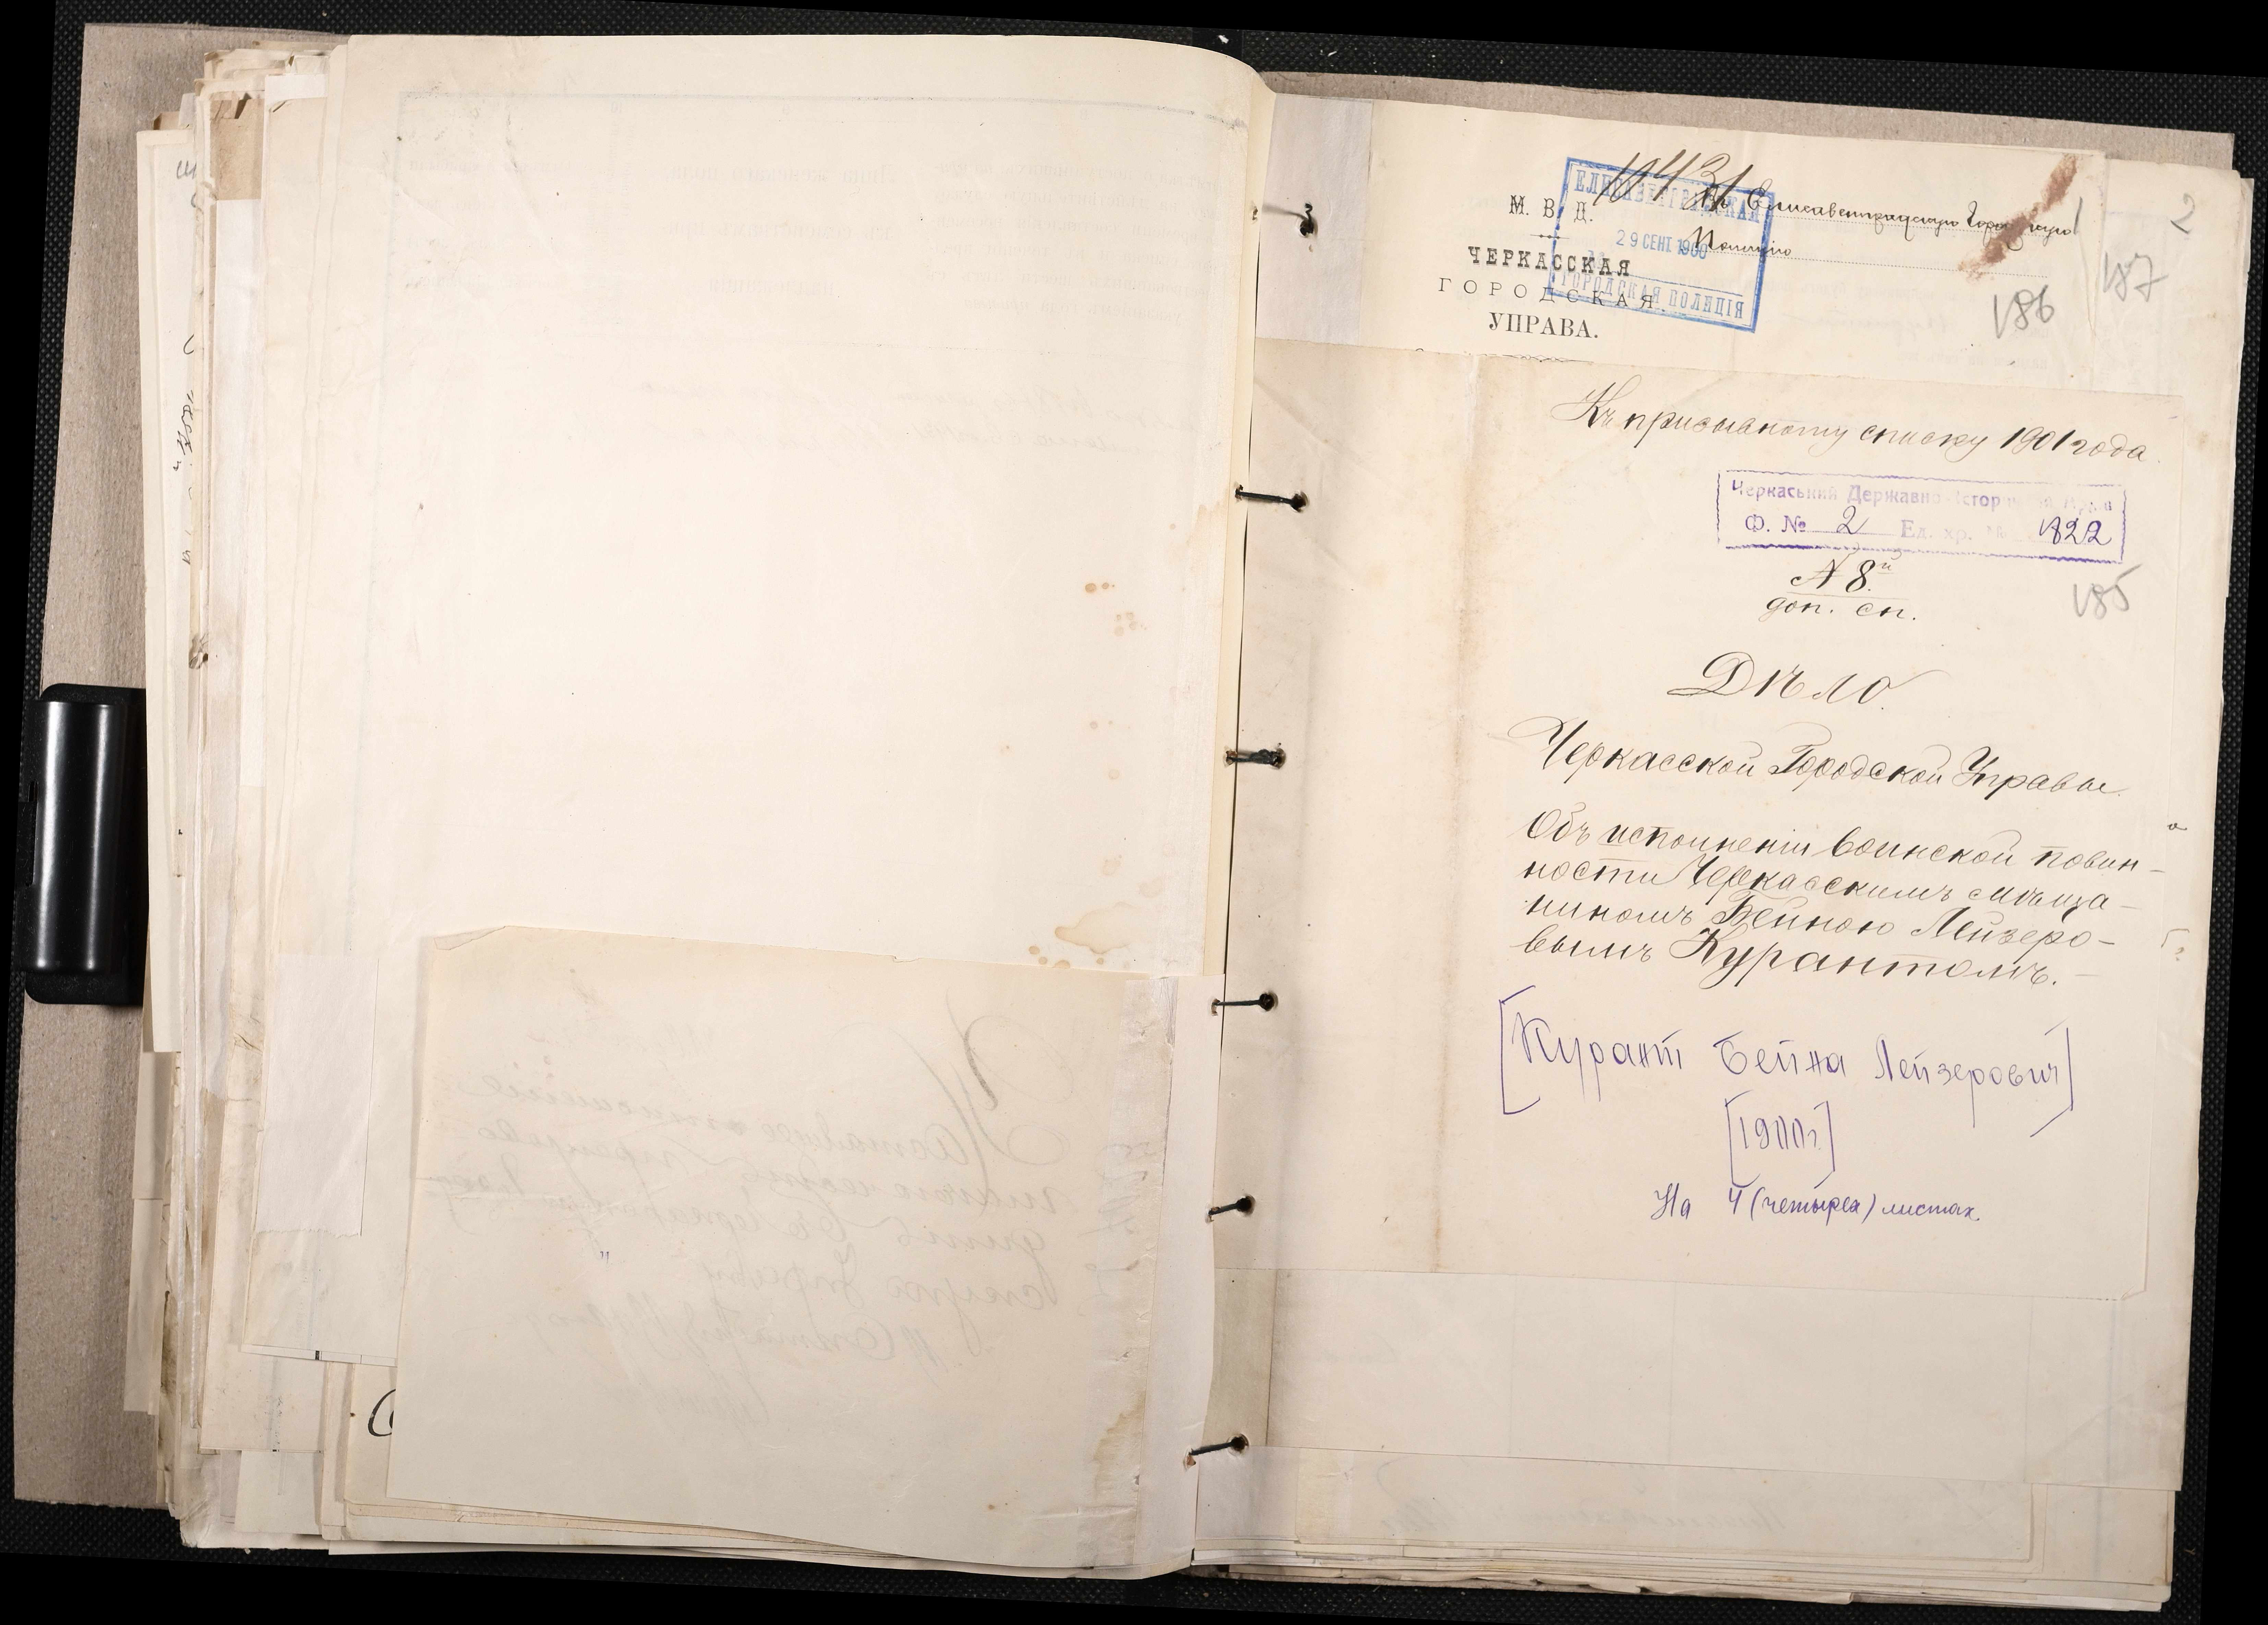 10431
М. В. Д.
ЧЕРКАССКАЯ
ГОРОДСКАЯ
УПРАВА.
ЕЛИСАВЕТГРАДСКАЯ
29 СЕНТ. 1900
ГОРОДСКАЯ ПОЛИЦІЯ
Въ Елисаветградскую Городскую
Полицію
2
187
186
Къ призывному списку 1901 года.
Черкаський Державно-Істор
Ф. № 2 Ед. хр. № 1822
185
№ 8й
доп. сп.
Дѣло.
Черкасской Городской Управы.
Объ исполненіи воинской повин-
ности Черкасскимъ мѣща-
ниномъ Бейною Лейзеро-
вымъ Курантомъ.
[Курант Бейна Лейзерович]
[1900г.]
На 4 (четырех) листах.